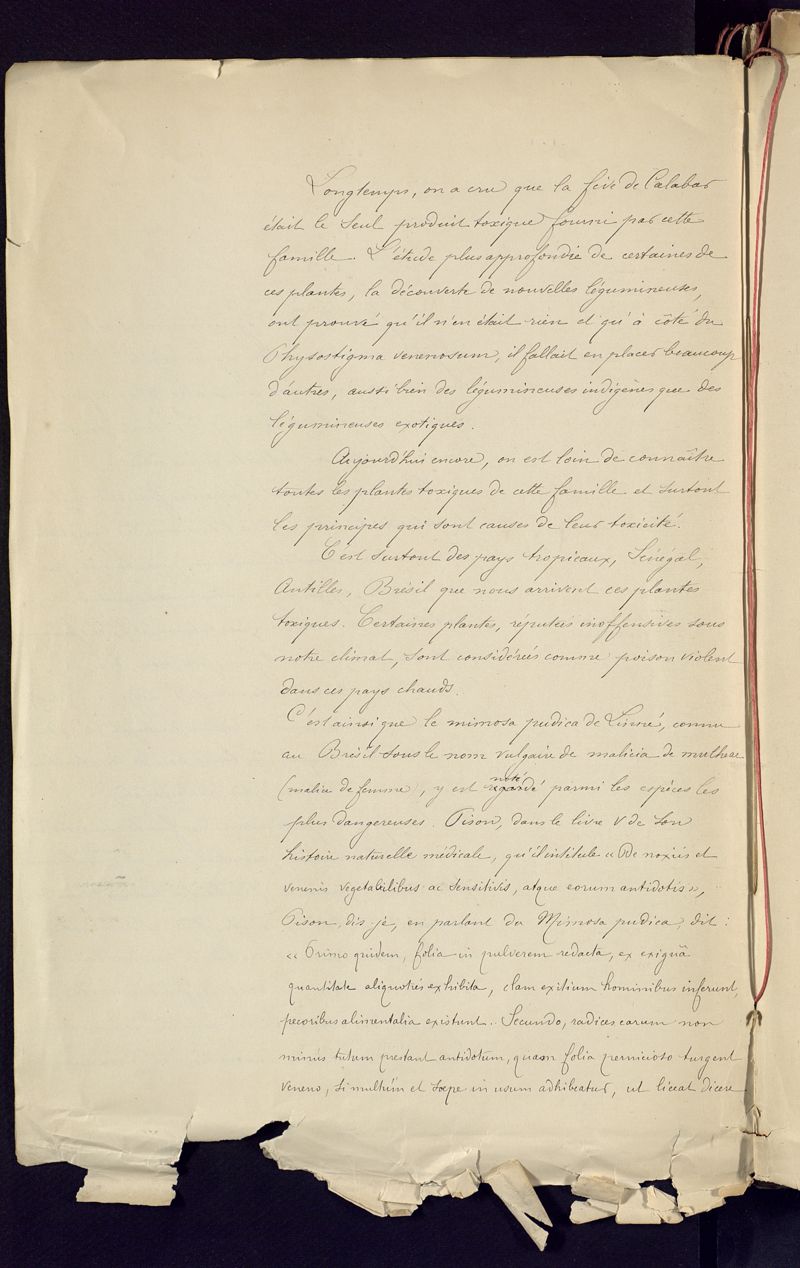 Longtemps, on a cru que la fève de Calabar
était le seul produit toxique fourni par cette
famille. L'étude plus approfondie de certaines de
ces plantes, la découverte de nouvelles légumineuses,
ont prouvé qu'il n'en était rien et qu'à côté du
Physostigma venenosum, il fallait en placer beaucoup
d'autres, aussi bien des légumineuses indigènes que des
légumineuses exotiques.
Aujourd'hui encore, on est loin de connaître
toutes les plantes toxiques de cette famille et surtout
les principes qui sont causes de leur toxicité.
C'est surtout des pays tropicaux, Sénégal,
Antilles, Brésil que nous arrivent ces plantes
toxiques. Certaines plantes, réputées inoffensives sous
notre climat, sont considérées comme poison violent
dans ces pays chauds.
C'est ainsi que le mimosa pudica de Linné, connu
au Brésil sous le nom vulgaire de malicia de mulhear
(malice de femme), y est noté parmi les espèces les
plus dangereuses. Pison, dans le livre V de son
histoire naturelle médicale, qu'il intitule « De noxiis et
venenis vegetabilibus ac sensitivis, atque eorum antidotis »,
Pison, dis-je, en parlant du Mimosa pudica, dit :
« Primo quidem, folia in pulverem redacta, ex exiguâ
quantitate aliquoties exhibita, clam exitium hominibus inferunt,
pecoribus alimentalia existunt. Secundo, radices earum non
minus tutum prestant antidotum, quam folia pernicioso turgent
veneno, si multùm et sæpe in usum adhibeatur, ut liceat dicere